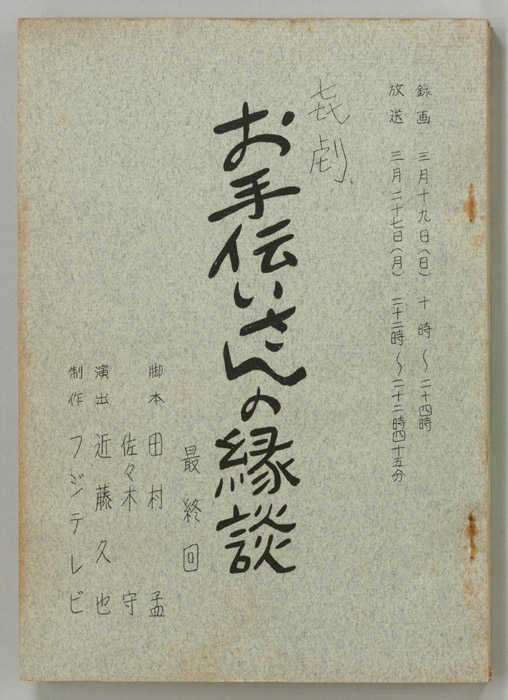 録画 三月十九日(日) 十時〜二十四時
放送 三月二十七日(月) 二十二時〜二十二時四十五分
㐂劇
お手伝いさんの縁談
最終回
脚本 田村 孟
佐々木 守
演出 近藤久也
制作 フジテレビ